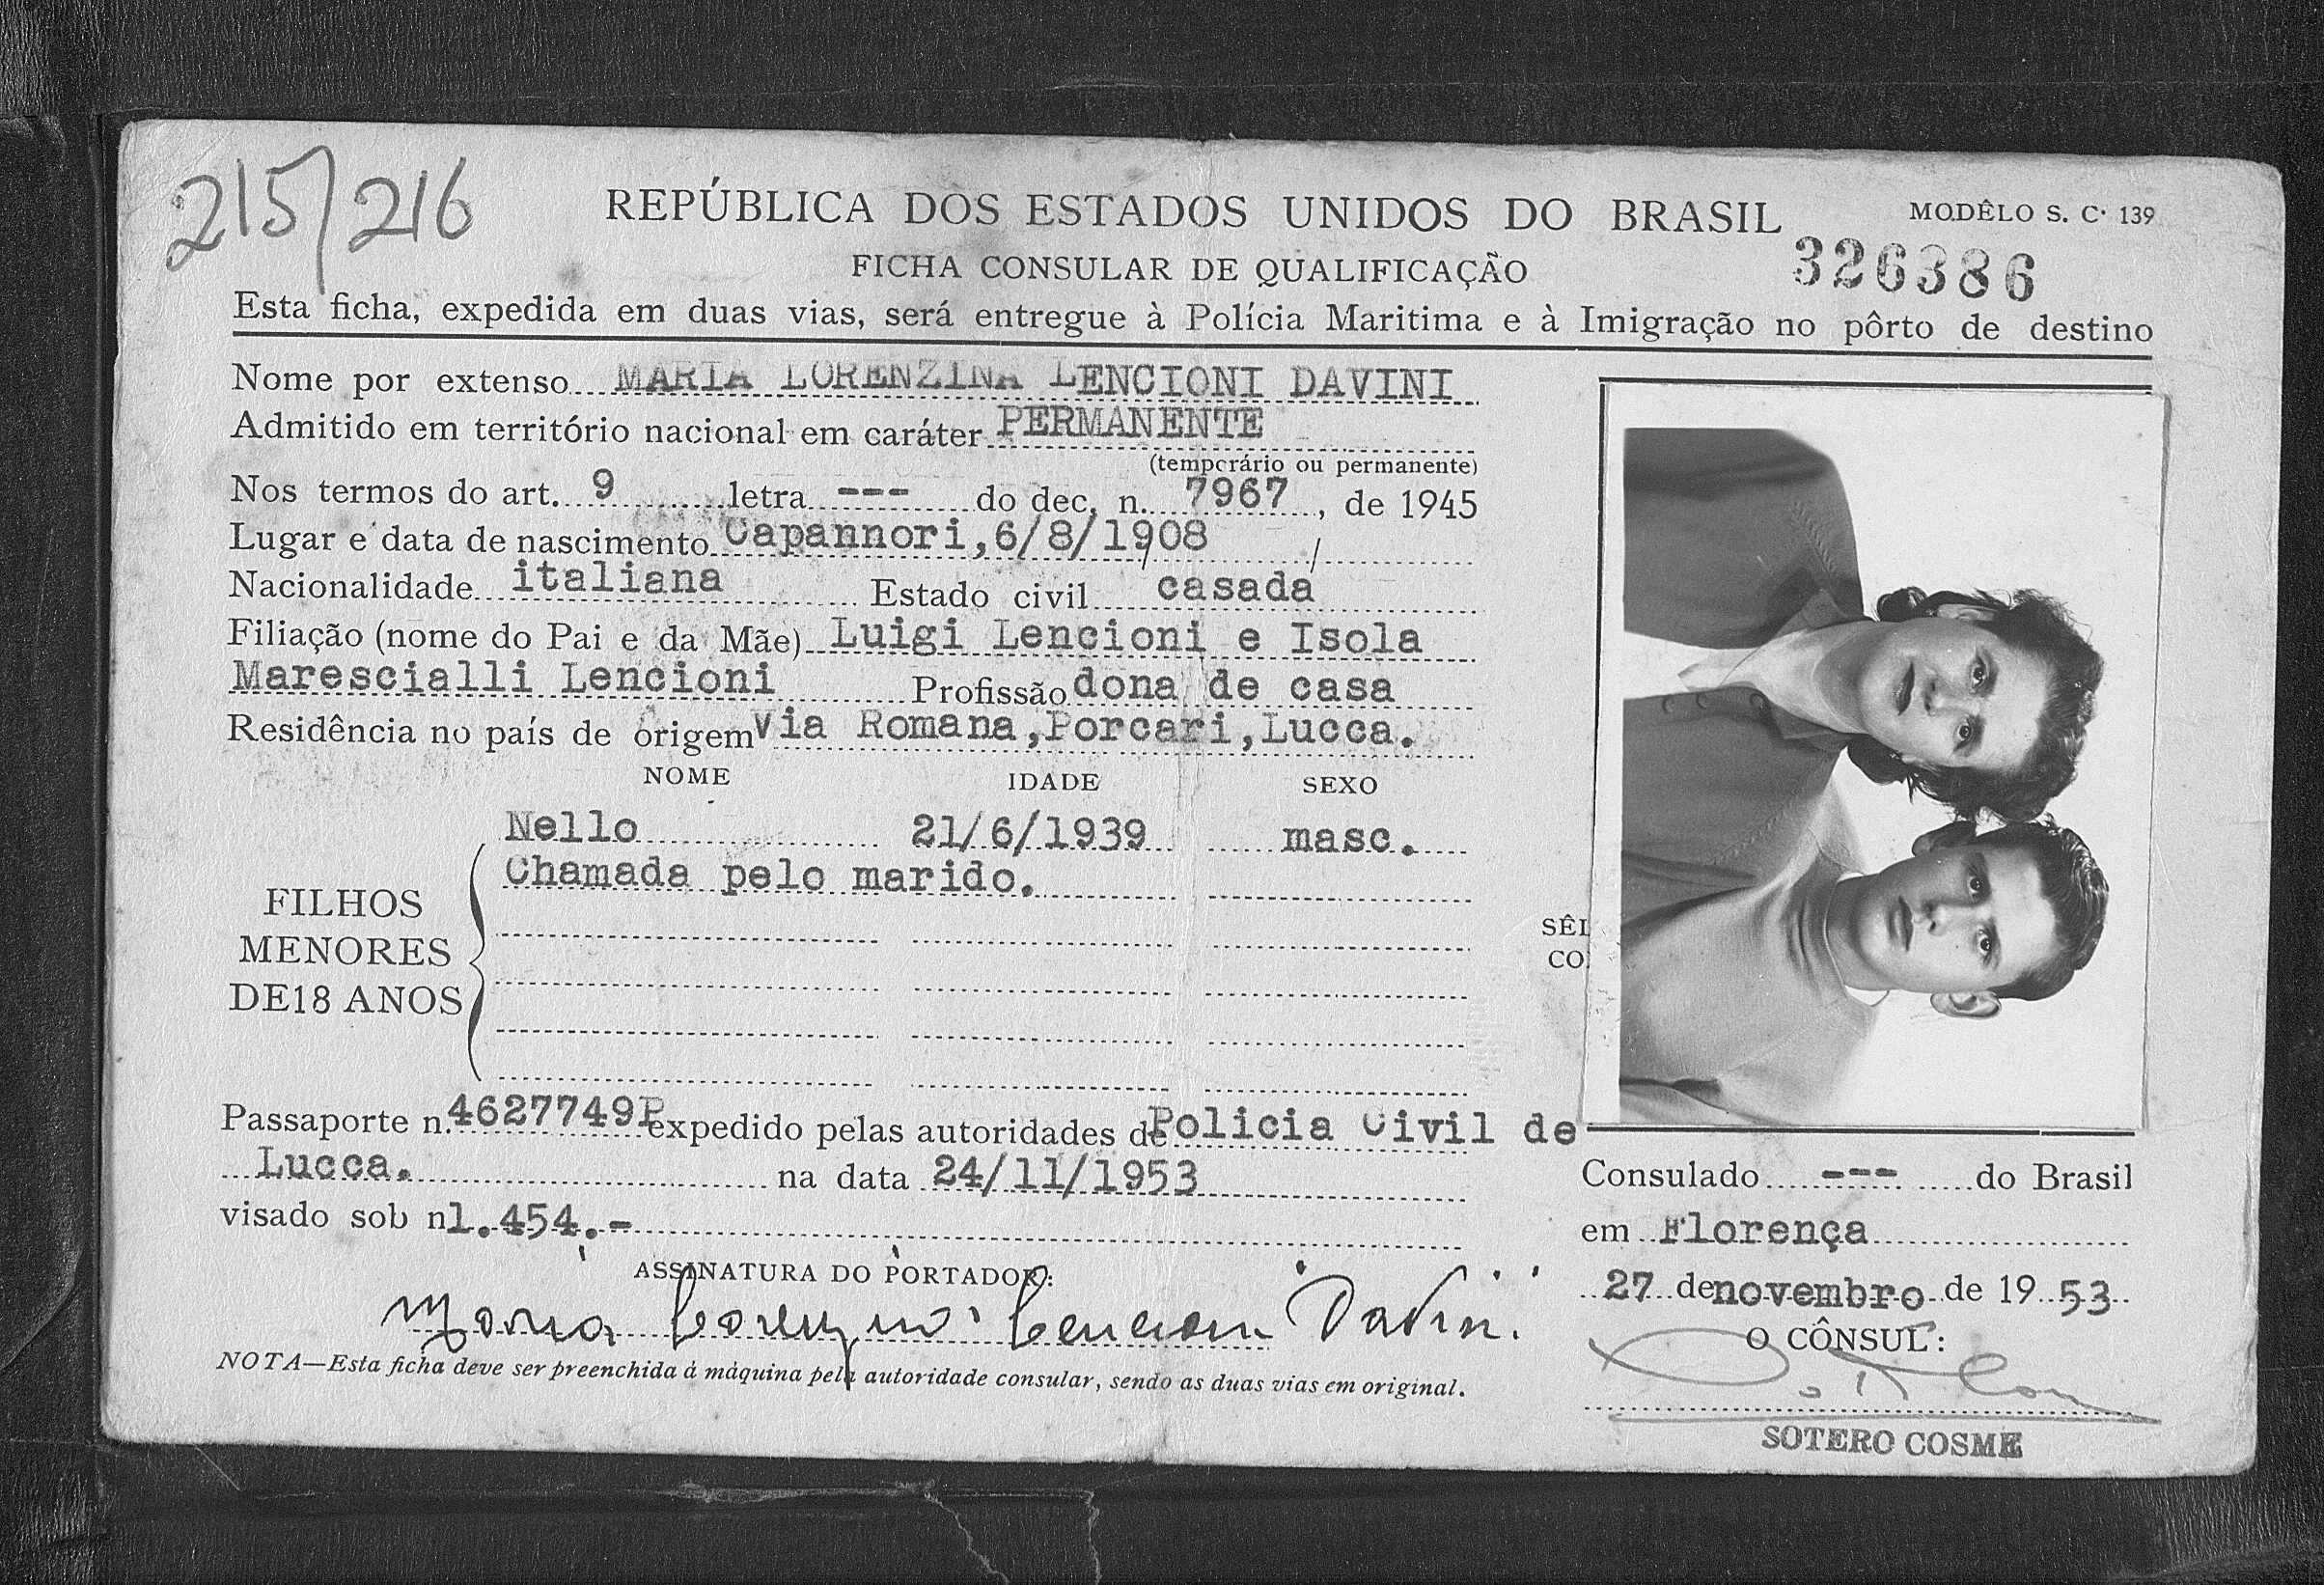 215/216
REPÚBLICA DOS ESTADOS UNIDOS DO BRASIL
MODÊLO S. C. 139
326386
FICHA CONSULAR DE QUALIFICAÇÃO
Esta ficha, expedida em duas vias, será entregue à Polícia Maritima e à Imigração no pôrto de destino
Nome por extenso MARIA LORENZINA LENCIONI DAVINI
Admitido em território nacional em caráter PERMANENTE
(temporário ou permanente)
Nos termos do art. 9 letra --- do dec. n. 7967, de 1945
Lugar e data de nascimento Capannori,6/8/1908
Nacionalidade italiana Estado civil casada
Filiação (nome do Pai e da Mãe) Luigi Lencioni e Isola
Marescialli Lencioni Profissão dona de casa
Residência no país de origem Via Romana,Porcari,Lucca.
NOME IDADE SEXO
Nello 21/6/1939 masc.
Chamada pelo marido.
FILHOS
MENORES
DE18 ANOS
SÊL
CO
Passaporte n. 4627749P expedido pelas autoridades de Policia Civil de
Lucca. na data 24/11/1953
visado sob n 1.454.-
ASSINATURA DO PORTADOR:
Maria Lorenzina Lencioni Davini
NOTA—Esta ficha deve ser preenchida à màquina pela autoridade consular, sendo as duas vias em original.
Consulado --- do Brasil
em Florença
27 de novembro de 19 53
O CÔNSUL:
SOTERO COSME